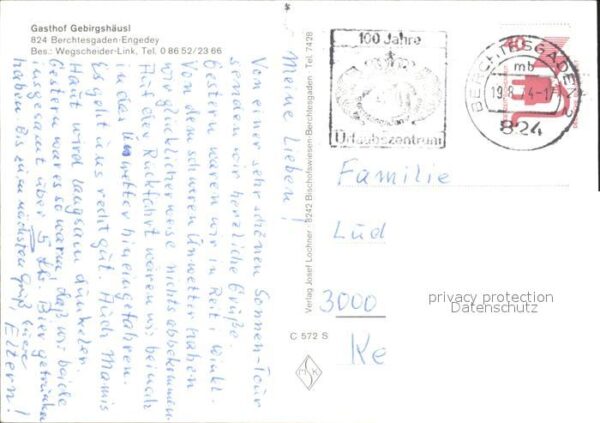 Gasthof Gebirgshäusl
824 Berchtesgaden-Engedey
Bes.: Wegscheider-Link, Tel. 0 86 52/23 66
Meine Lieben!
Von einer sehr schönen Sonnen-Tour
senden wir herzliche Grüße.
Gestern waren wir in Reit i. Winkl.
Von dem schweren Unwetter haben
wir glücklicherweise nichts abbekommen.
Auf der Rückfahrt wären wir beinah
in das Unwetter hineingefahren.
Es geht uns recht gut. Auch Mamis
Haut wird langsam dunkler.
Gestern war es so warm, daß wir beide
insgesamt über 5 Ltr. Bier getrunken
haben. Bis zum nächsten Gruß Eure
Eltern!
Verlag Josef Lochner · 8242 Bischofswiesen/Berchtesgaden · Tel. 7428
C 572 S
100 Jahre
Urlaubszentrum
BERCHTESGADEN 2
mb
19.8.74-17
824
40
Familie
Lüd
3000
Ke
privacy protection
Datenschutz